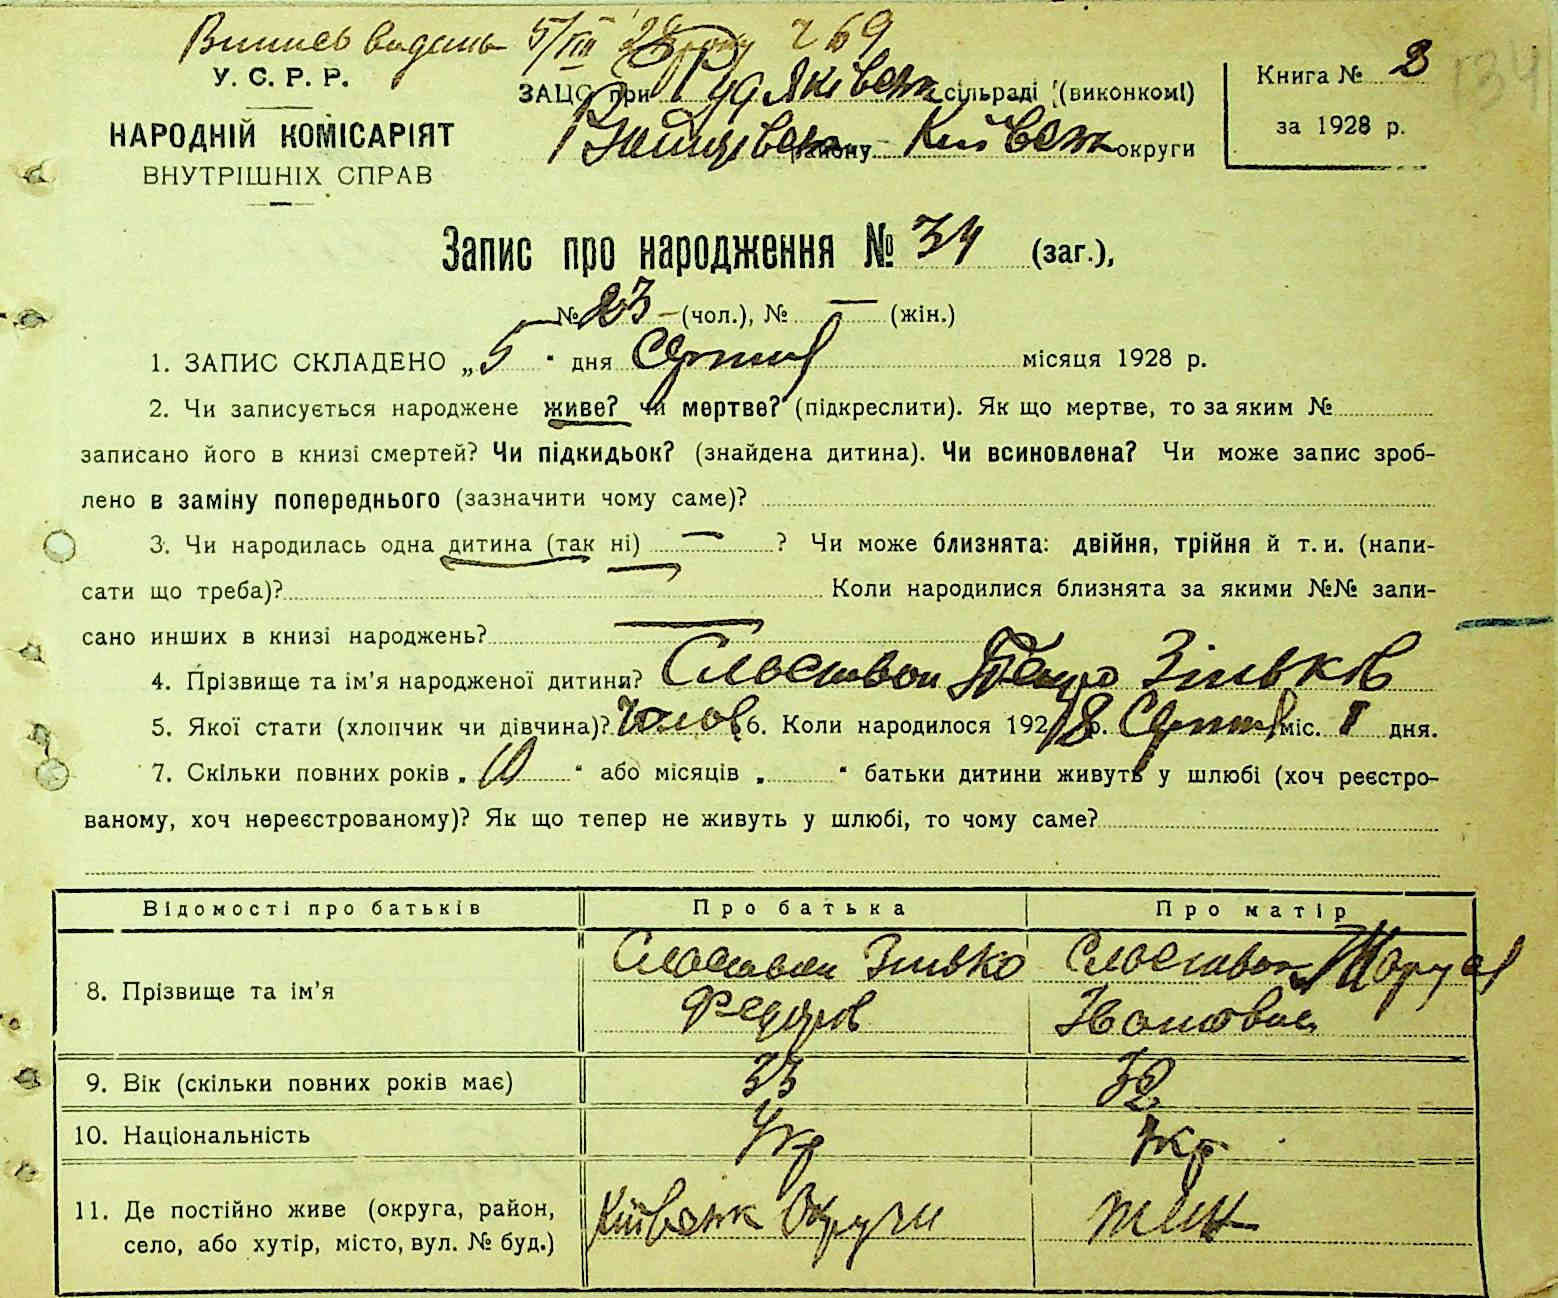 Випись видань 5/VIII 28 року ч 69
У. С. Р. Р.
НАРОДНІЙ КОМІСАРІЯТ
ВНУТРІШНІХ СПРАВ
ЗАЦС при Рудяківськ сільраді (виконкомі)
району Київськ округи
Книга № 2
за 1928 р.
134
Запис про народження № 34 (заг.),
№ 23 – (чол.), № — (жін.)
1. ЗАПИС СКЛАДЕНО „5" дня Серпня місяця 1928 р.
2. Чи записується народжене живе? чи мертве? (підкреслити). Як що мертве, то за яким №
записано його в книзі смертей? Чи підкидьок? (знайдена дитина). Чи всиновлена? Чи може запис зроб-
лено в заміну попереднього (зазначити чому саме)?
3. Чи народилась одна дитина (так ні) — ? Чи може близнята: двійня, трійня й т. и. (напи-
сати що треба)? Коли народилися близнята за якими №№ запи-
сано инших в книзі народжень? —
4. Прізвище та ім'я народженої дитини? Сластьон Петро Зіньков
5. Якої стати (хлопчик чи дівчина)? Чолов 6. Коли народилося 1928 р. Серпня міс. 1 дня.
7. Скільки повних років „10" або місяців „ " батьки дитини живуть у шлюбі (хоч реєстро-
ваному, хоч нереєстрованому)? Як що тепер не живуть у шлюбі, то чому саме?
Відомості про батьків Про батька Про матір
8. Прізвище та ім'я Сластьон Зінько Сластьон Маруся
Федоров Іванівна
9. Вік (скільки повних років має) 33 32
10. Національність Укр Укр
11. Де постійно живе (округа, район,
село, або хутір, місто, вул. № буд.) Київськ Округи